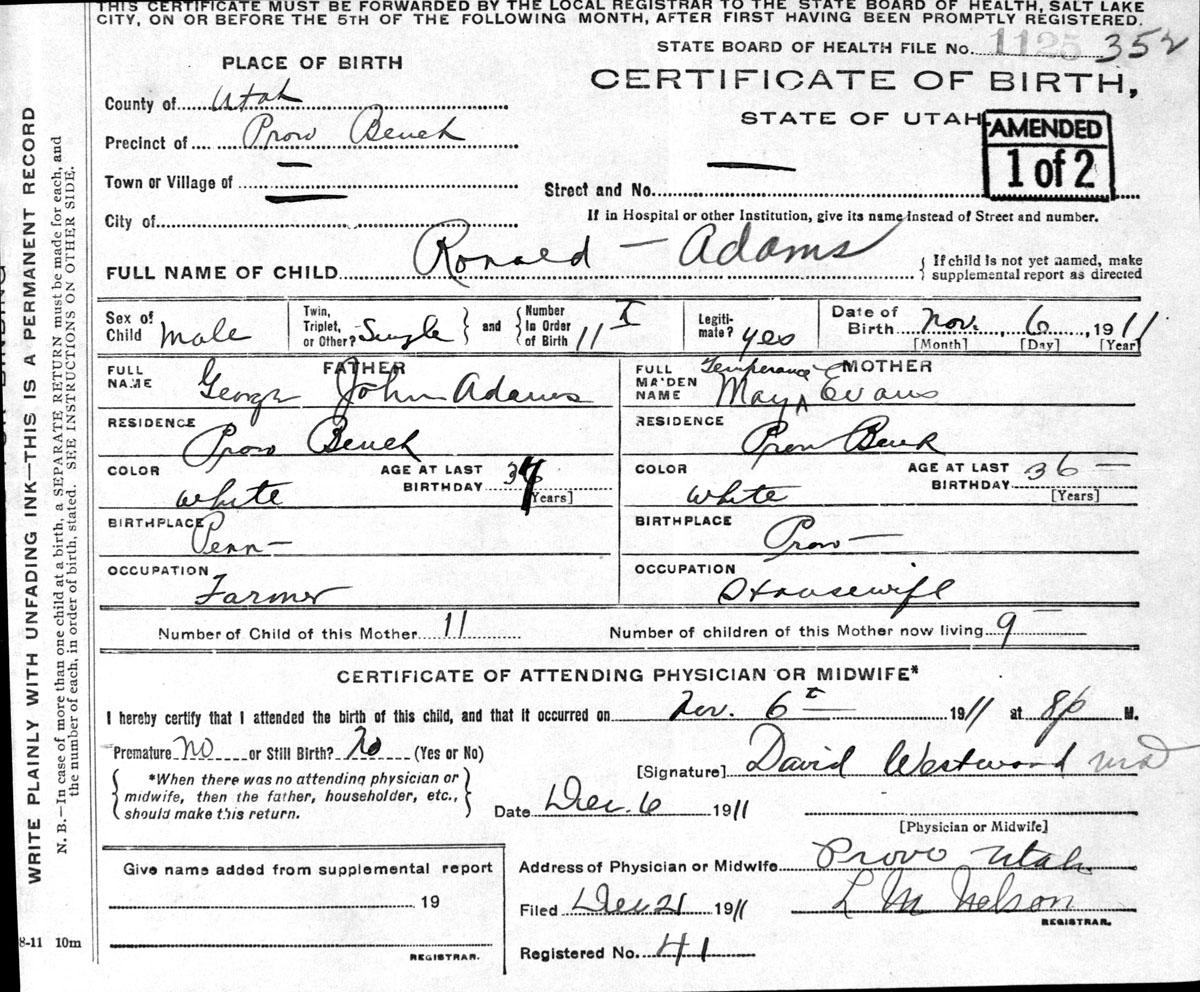 THIS CERTIFICATE MUST BE FORWARDED BY THE LOCAL REGISTRAR TO THE STATE BOARD OF HEALTH, SALT LAKE
CITY, ON OR BEFORE THE 5TH OF THE FOLLOWING MONTH, AFTER FIRST HAVING BEEN PROMPTLY REGISTERED.
STATE BOARD OF HEALTH FILE No. 1125 352
PLACE OF BIRTH
CERTIFICATE OF BIRTH,
STATE OF UTAH
AMENDED
1 of 2
County of Utah
Precinct of Provo Bench
Town or Village of —
Street and No. —
City of —
If in Hospital or other Institution, give its name instead of Street and number.
FULL NAME OF CHILD Ronald — Adams
{ If child is not yet named, make
supplemental report as directed
Sex of Child Male
Twin, Triplet, or Other? Single } and { Number In Order of Birth 11
Legitimate? yes
Date of Birth Nov. 6, 1911
[Month] [Day] [Year]
FATHER
FULL NAME George John Adams
RESIDENCE Provo Bench
COLOR white
AGE AT LAST BIRTHDAY 37 [Years]
BIRTHPLACE Penn —
OCCUPATION Farmer
MOTHER
FULL MAIDEN NAME May Temperance Evans
RESIDENCE Provo Bench
COLOR white
AGE AT LAST BIRTHDAY 36 — [Years]
BIRTHPLACE Provo —
OCCUPATION Housewife
Number of Child of this Mother 11
Number of children of this Mother now living 9 —
CERTIFICATE OF ATTENDING PHYSICIAN OR MIDWIFE*
I hereby certify that I attended the birth of this child, and that it occurred on Nov. 6 1911 at 8 p M.
Premature no or Still Birth? No (Yes or No)
{ *When there was no attending physician or
midwife, then the father, householder, etc.,
should make this return. }
[Signature] David Westwood MD
Date Dec. 6 1911
[Physician or Midwife]
Give name added from supplemental report
19
REGISTRAR.
Address of Physician or Midwife Provo Utah
Filed Dec 21 1911
L M Nelson
REGISTRAR.
Registered No. 41
8-11 10m
WRITE PLAINLY WITH UNFADING INK—THIS IS A PERMANENT RECORD
N. B.—In case of more than one child at a birth, a SEPARATE RETURN must be made for each, and
the number of each, in order of birth, stated. SEE INSTRUCTIONS ON OTHER SIDE.